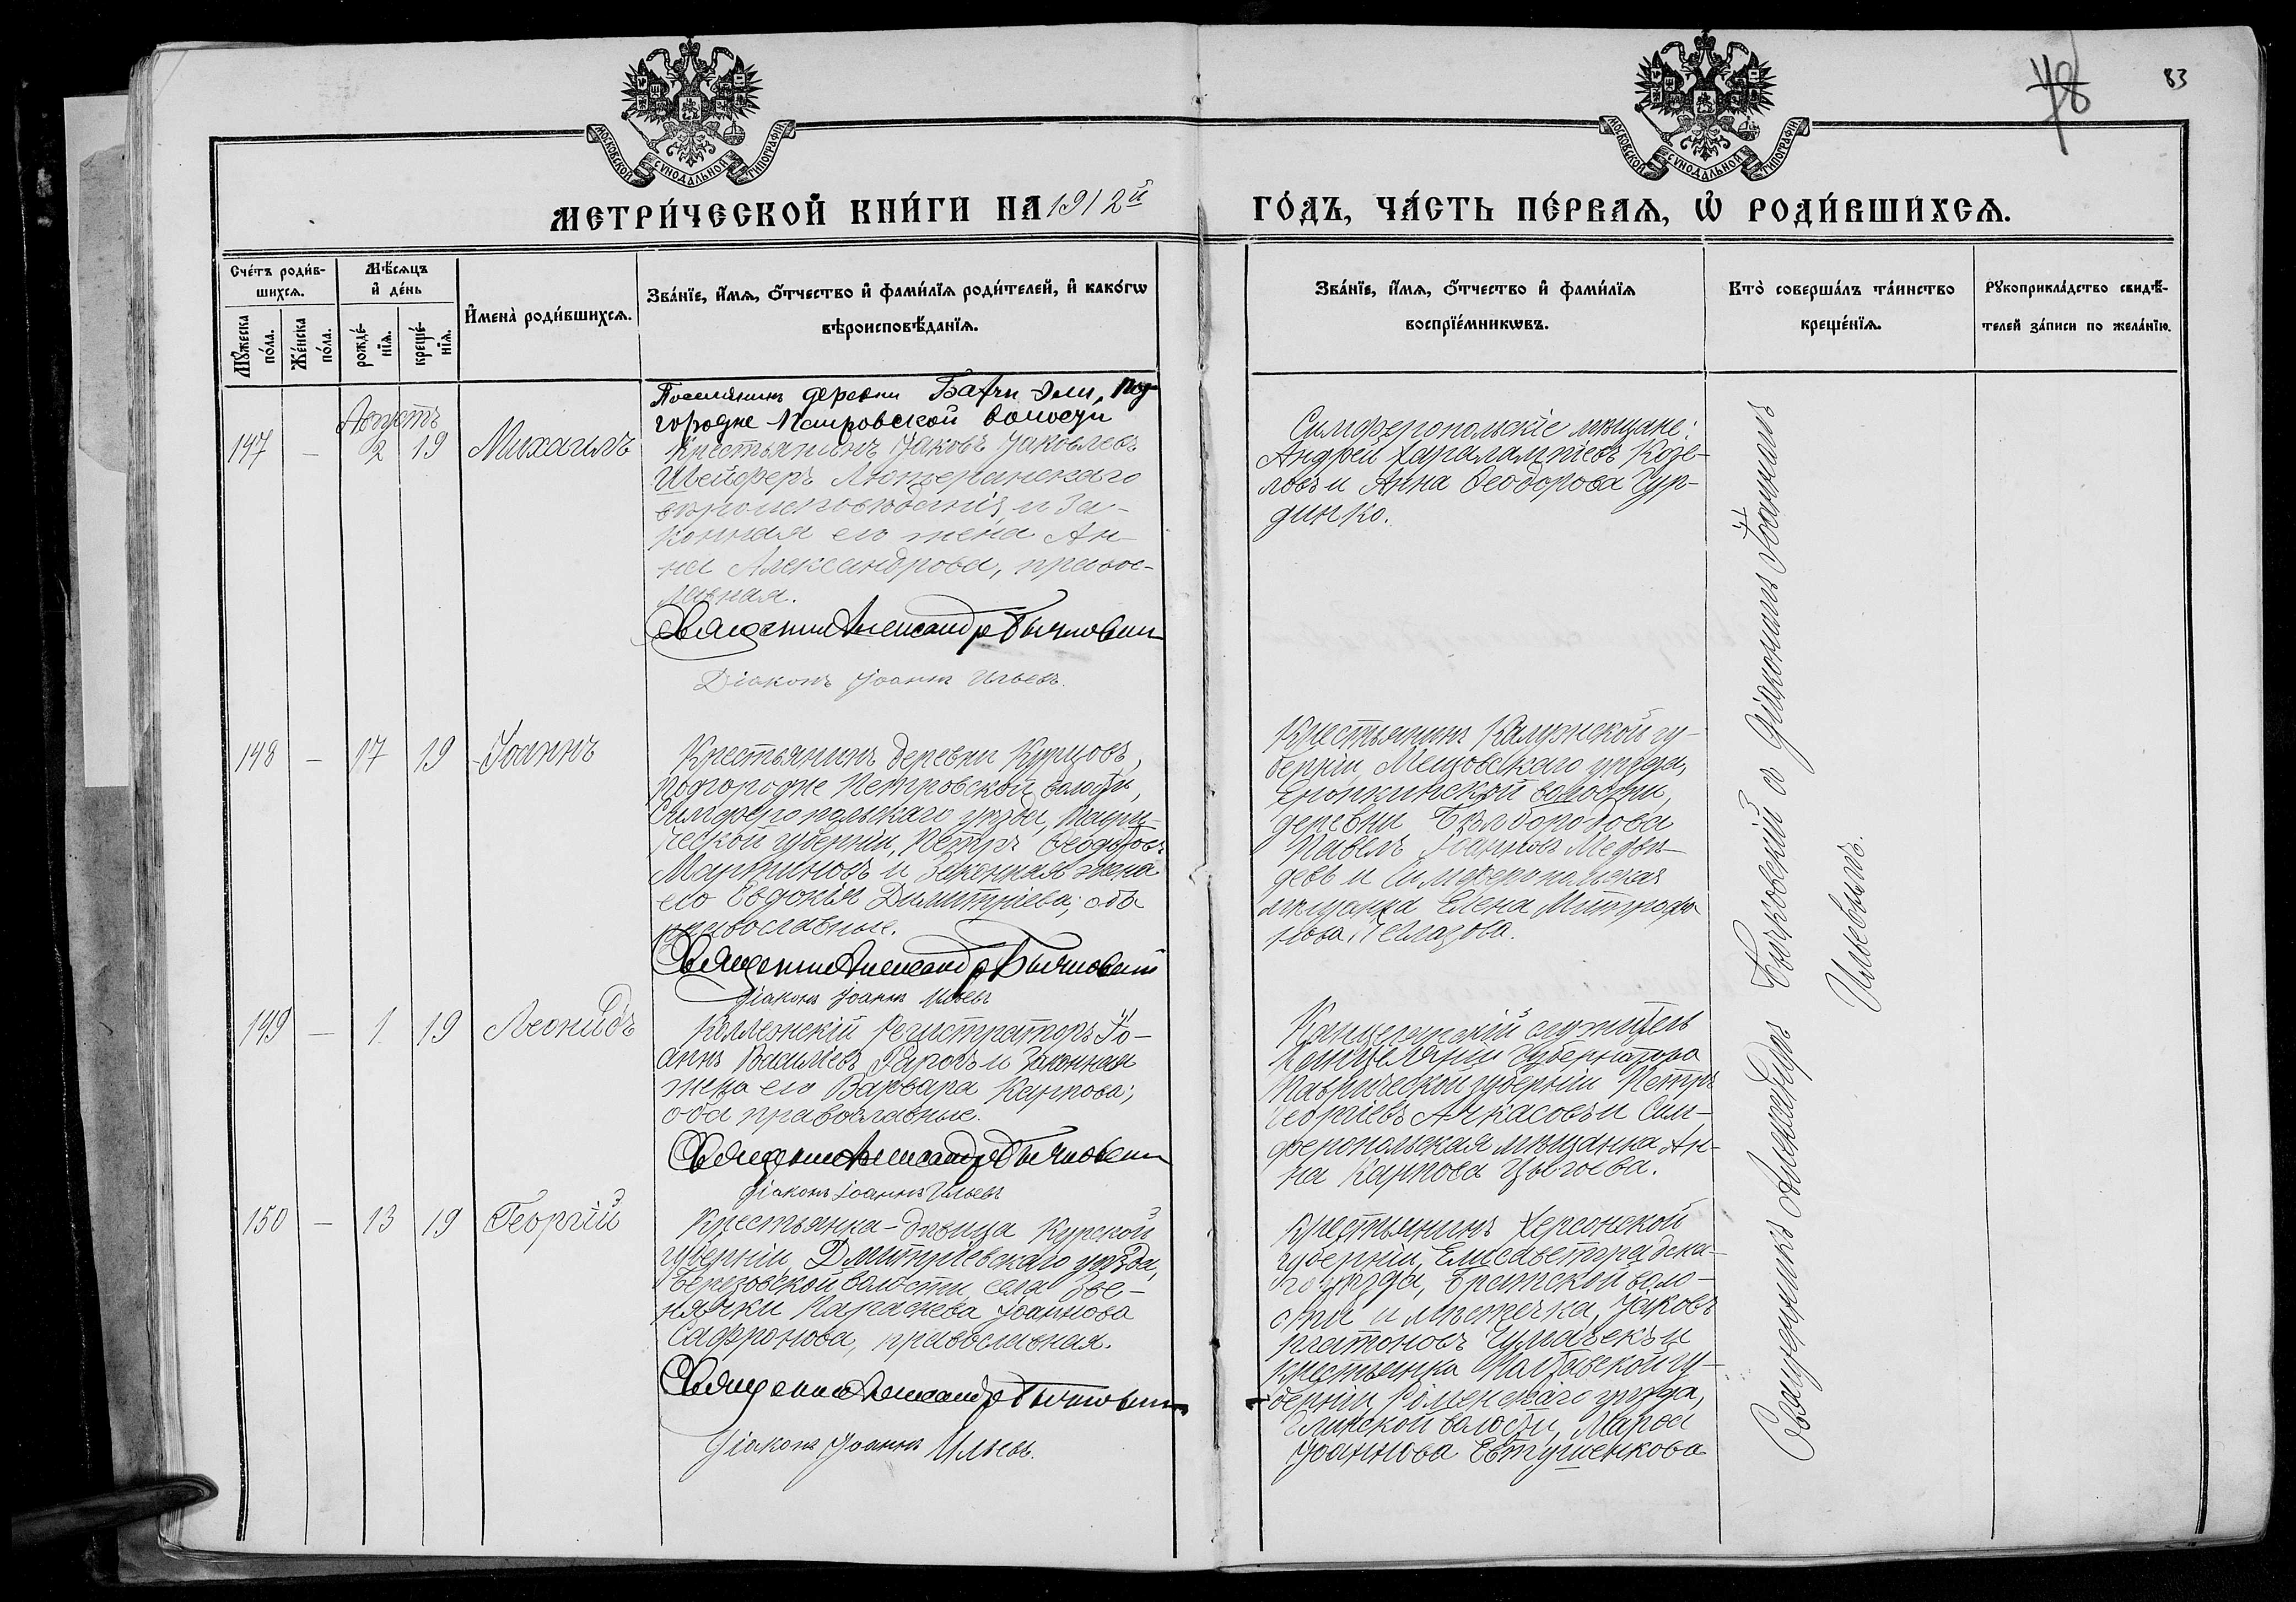 78
83
МОСКОВСКОЙ СѴНОДАЛЬНОЙ ТИПОГРАФІИ
МОСКОВСКОЙ СѴНОДАЛЬНОЙ ТИПОГРАФІИ
МЕТРИ́ЧЕСКОЙ КНИ́ГИ НА 1912й
ГО́ДЪ, ЧА́СТЬ ПЕ́РВАѦ, Ѽ РОДИ́ВШИХСѦ.
Сче́тъ роди́в-
шихсѧ.
Мꙋ́жеска
по́ла.
Же́нска
по́ла.
Мѣ́сѧцъ
и҆ де́нь
рожде́-
нїѧ.
креще́-
нїѧ.
И҆мена̀ роди́вшихсѧ.
Зва́нїе, и҆́мѧ, ѻ҆́тчество и҆ фами́лїѧ роди́телей, и҆ како́гѡ
вѣроисповѣ́данїѧ.
Зва́нїе, и҆́мѧ, ѻ҆́тчество и҆ фами́лїѧ
воспрїе́мникѡвъ.
Кто̀ соверша́лъ та́инство
креще́нїѧ.
Рꙋкоприкла́дство свидѣ́-
телей за́писи по жела́нїю.
Августъ
147 — 2 19 Михаилъ
Поселянинъ деревни Бахчи-Эли, Под-
городне Петровской волости
Крестьянинъ Іаковъ Іаковлевъ
Шейферъ Лютеранскаго
вѣроисповѣданія и за-
конная его жена Ан-
на Александрова, правос-
лавная.
Священникъ Александръ Бычковскій
Діаконъ Іоаннъ Ильевъ.
Симферопольскіе мѣщане:
Андрей Харалампіевъ Козе-
ловъ и Анна Ѳеодорова Гур-
динко.
148 — 17 19 Іоаннъ
Крестьянинъ деревни Курцовъ,
Подгородне Петровской волости,
Симферопольскаго уѣзда, Таври-
ческой губерніи, Петръ Ѳеодоровъ
Мартыновъ и законная жена
его Евдокія Димитріева; оба
православные.
Священникъ Александръ Бычковскій
Діаконъ Іоаннъ Ильевъ
Крестьянинъ Калужской гу-
берніи, Мещовскаго уѣзда,
волости,
деревни Бѣлбородова
Павелъ Іоанновъ Медвѣ-
девъ и Симферопольская
мѣщанка Елена Митрофа
нова
149 — 1 19 Леонидъ
Коллежскій Регистраторъ Іо-
аннъ Васильевъ Таровъ и законная
жена его Варвара Карпова;
оба православные.
Священникъ Александръ Бычковскій
Діаконъ Іоаннъ Ильевъ
Канцелярскій служитель
Канцеляріи Губернатора
Таврической губерніи Петръ
Георгіевъ Ачкасовъ и Сим-
феропольская мѣщанка Ан-
на Карпова
150 — 13 19 Георгій
Крестьянка-дѣвица Курской
губерніи, Дмитріевскаго уѣзда,
Березовской волости, села Зве-
нячки Параскева Іоаннова
Сафронова, православная.
Священникъ Александръ Бычковскій
Діаконъ Іоаннъ Ильевъ.
Крестьянинъ Херсонской
губерніи, Елисаветградска-
го уѣзда, Братской воло-
сти и мѣстечка, Іаковъ
Платоновъ Чумачекъ и
Крестьянка Полтавской гу-
берніи Роменскаго уѣзда,
Глинской волости, Марѳа
Іоаннова Евтушенкова
Священникъ Александръ Бычковскій и Діаконъ Іоаннъ
Ильевымъ.